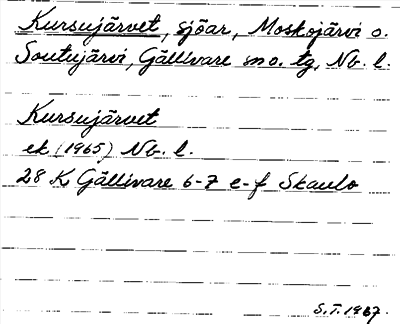 Kursujärvet, sjöar, Moskojärvi o.
Soutujärvi, Gällivare sn o. tg, Nb. l.
Kursujärvet
ek (1965) Nb. l.
28 K Gällivare 6-7 e-f Skaulo
S.T. 1967.